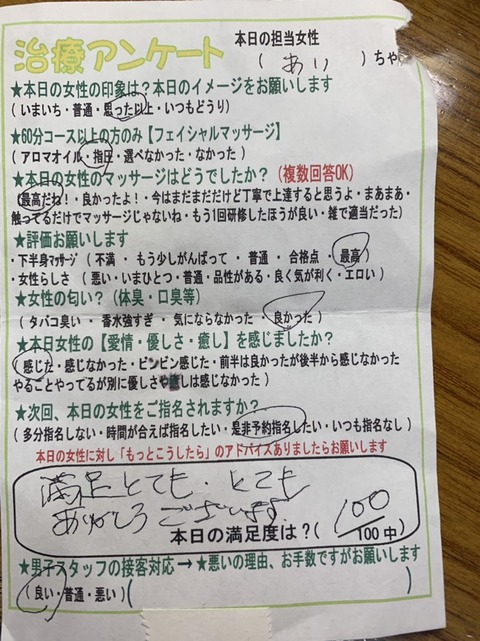 治療アンケート
本日の担当女性
( あい )ちゃ
★本日の女性の印象は?本日のイメージをお願いします
(いまいち・普通・思った以上・いつもどうり)
★60分コース以上の方のみ【フェイシャルマッサージ】
( アロマオイル・指圧・選べなかった・なかった )
★本日の女性のマッサージはどうでしたか? (複数回答OK)
(最高だね!・良かったよ!・今はまだまだだけど丁寧で上達すると思うよ・まあまあ・
触ってるだけでマッサージじゃないね・もう1回研修したほうが良い・雑で適当だった)
★評価お願いします
・下半身マッサージ ( 不満 ・ もう少しがんばって ・ 普通 ・ 合格点 ・ 最高 )
・女性らしさ ( 悪い・いまひとつ・普通・品性がある・良く気が利く・エロい )
★女性の匂い? (体臭・口臭等)
( タバコ臭い ・ 香水強すぎ ・ 気にならなかった ・ 良かった )
★本日女性の【愛情・優しさ・癒し】を感じましたか?
(感じた・感じなかった・ビンビン感じた・前半は良かったが後半から感じなかった
やることやってるが別に優しさや癒しは感じなかった )
★次回、本日の女性をご指名されますか?
( 多分指名しない・時間が合えば指名したい・是非予約指名したい・いつも指名なし )
本日の女性に対し「もっとこうしたら」のアドバイスありましたらお願いします
満足とても、とても
ありがとうございます
本日の満足度は?( 100
/100中)
★男子スタッフの接客対応 → ★悪いの理由、お手数ですがお願いします
( 良い・普通・悪い ) ( )